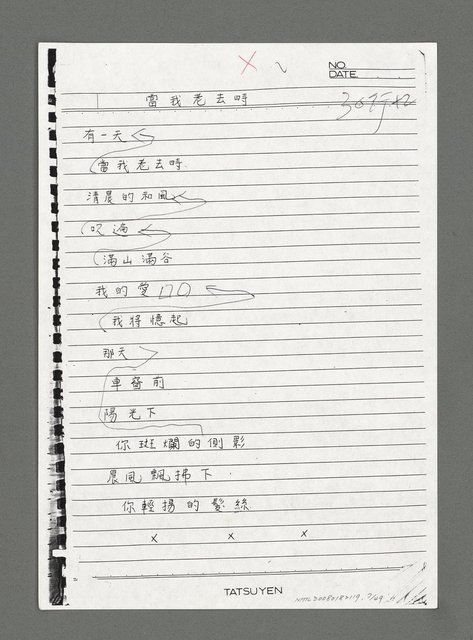 NO.
DATE
當我老去時
有一天
當我老去時
清晨的和風
吹遍
滿山滿谷
我的愛口口
我將憶起
那天
車窗前
陽光下
你斑斕的側影
晨風飄拂下
你輕揚的髮絲
× × ×
TATSUYEN